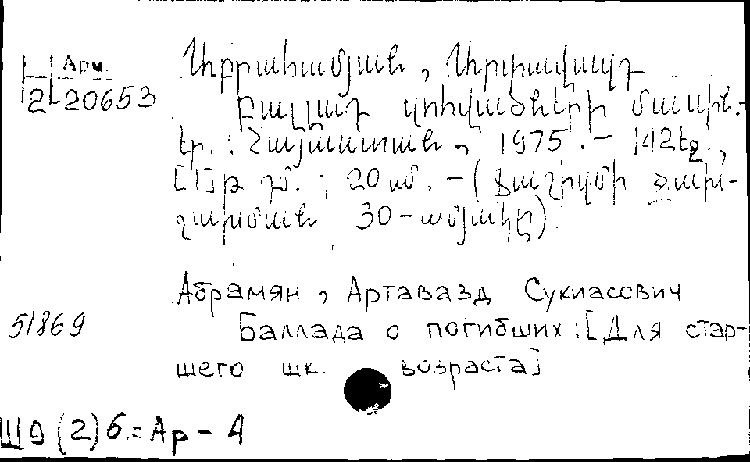 Арм.
2-20653
Աբրահամյան, Արտավազդ
Բալլադ կռիվածների մասին.-
Եր.: Հայաստան, 1975.- 142էջ,
[1]թ դմ.; 20սմ. -(Ֆաշիզմի ջախ-
ջախման 30-ամյակը).
Абрамян, Артавазд Сукиасович
51869
Баллада о погибших: [Для стар-
шего шк. возраста]
Ш9(2)6=Ар-4